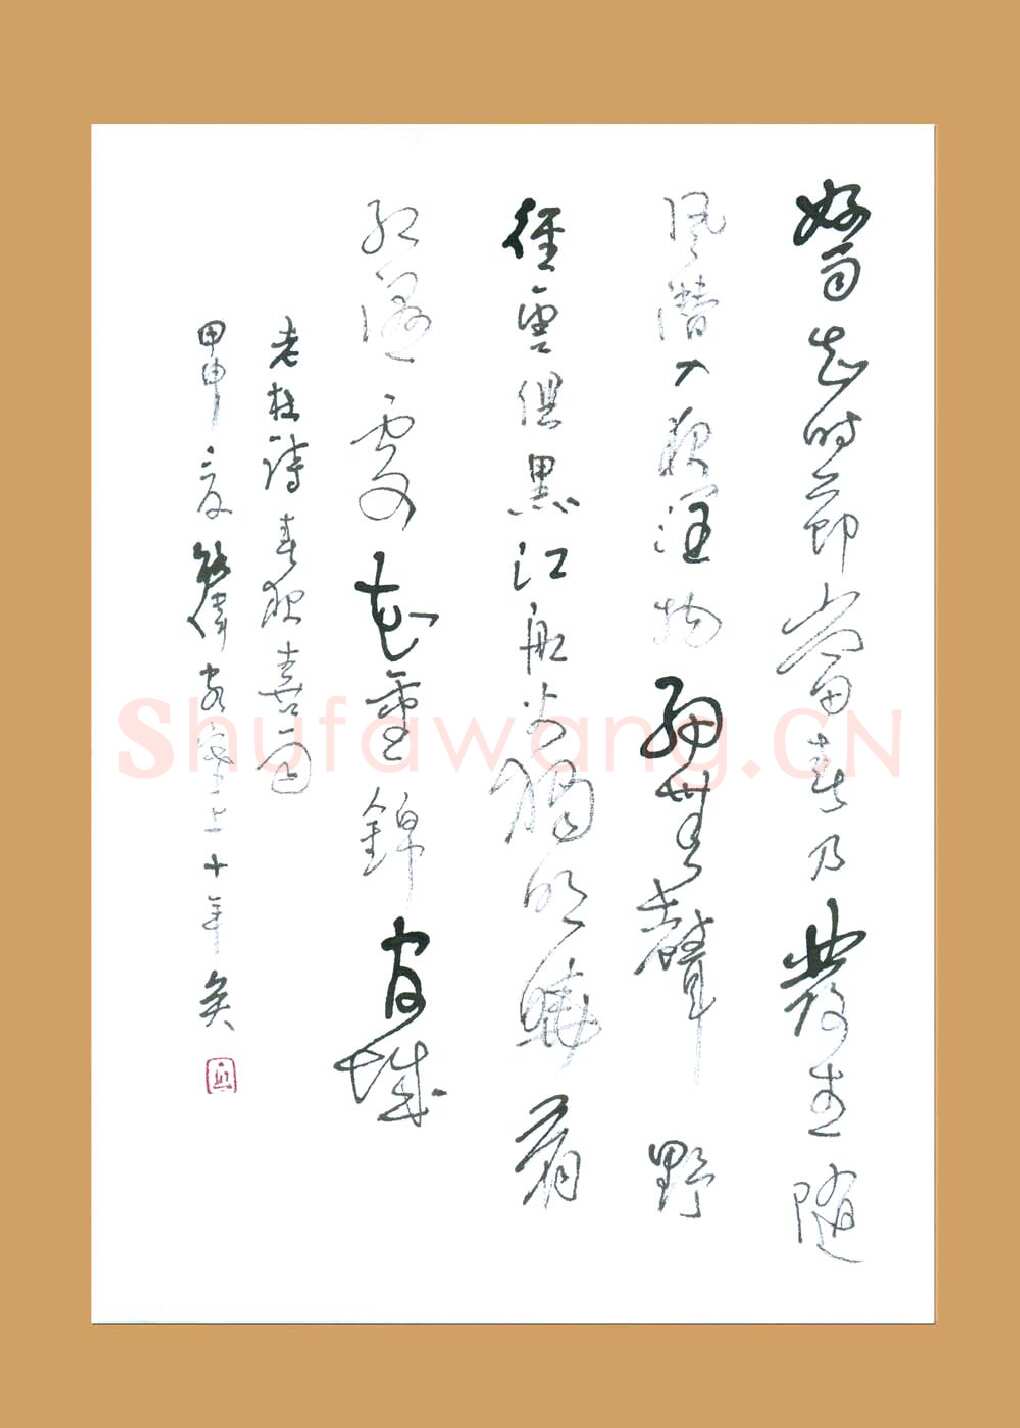 好雨知时節當春乃發生隨
風潛入夜潤物細無聲野
徑雲俱黑江船火獨明曉看
紅濕處花重錦官城
老杜詩春夜喜雨
甲申夏偉客十年矣
Shufawang.CN